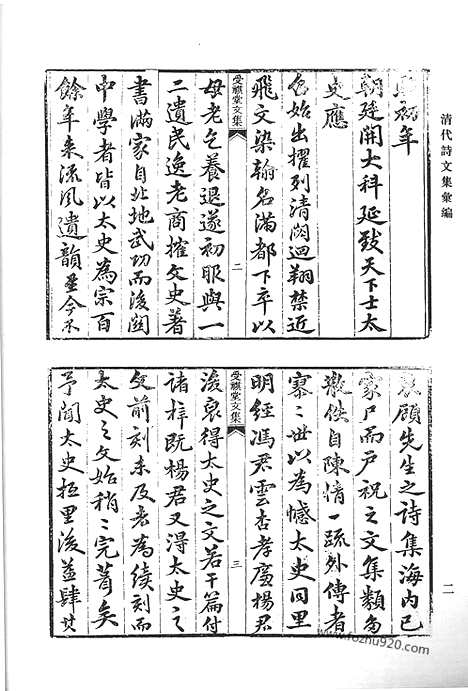 清代詩文集彙編
初年
朝廷開大科延致天下士太
史應
召始出擢列清閟迴翔禁近
飛文染翰名滿都下卒以
受祺堂文集 二
母老乞養退遂初服與一
二遺民逸老商搉文史著
書滿家自北地武功而後關
中學者皆以太史為宗百
餘年來流風遺韻至今不
衰顧先生之詩集海內已
家尸而戶祝之文集類多
散佚自陳情一疏外傳者
寥〻世以為憾太史同里
明經馮君雲杏孝廉楊君
受祺堂文集 三
浚裒得太史之文若干篇付
諸梓既楊君又得太史之
文前刻未及者為續刻而
太史之文始稍〻完善矣
予聞太史里後益肆其
二
www.fozhu920.com